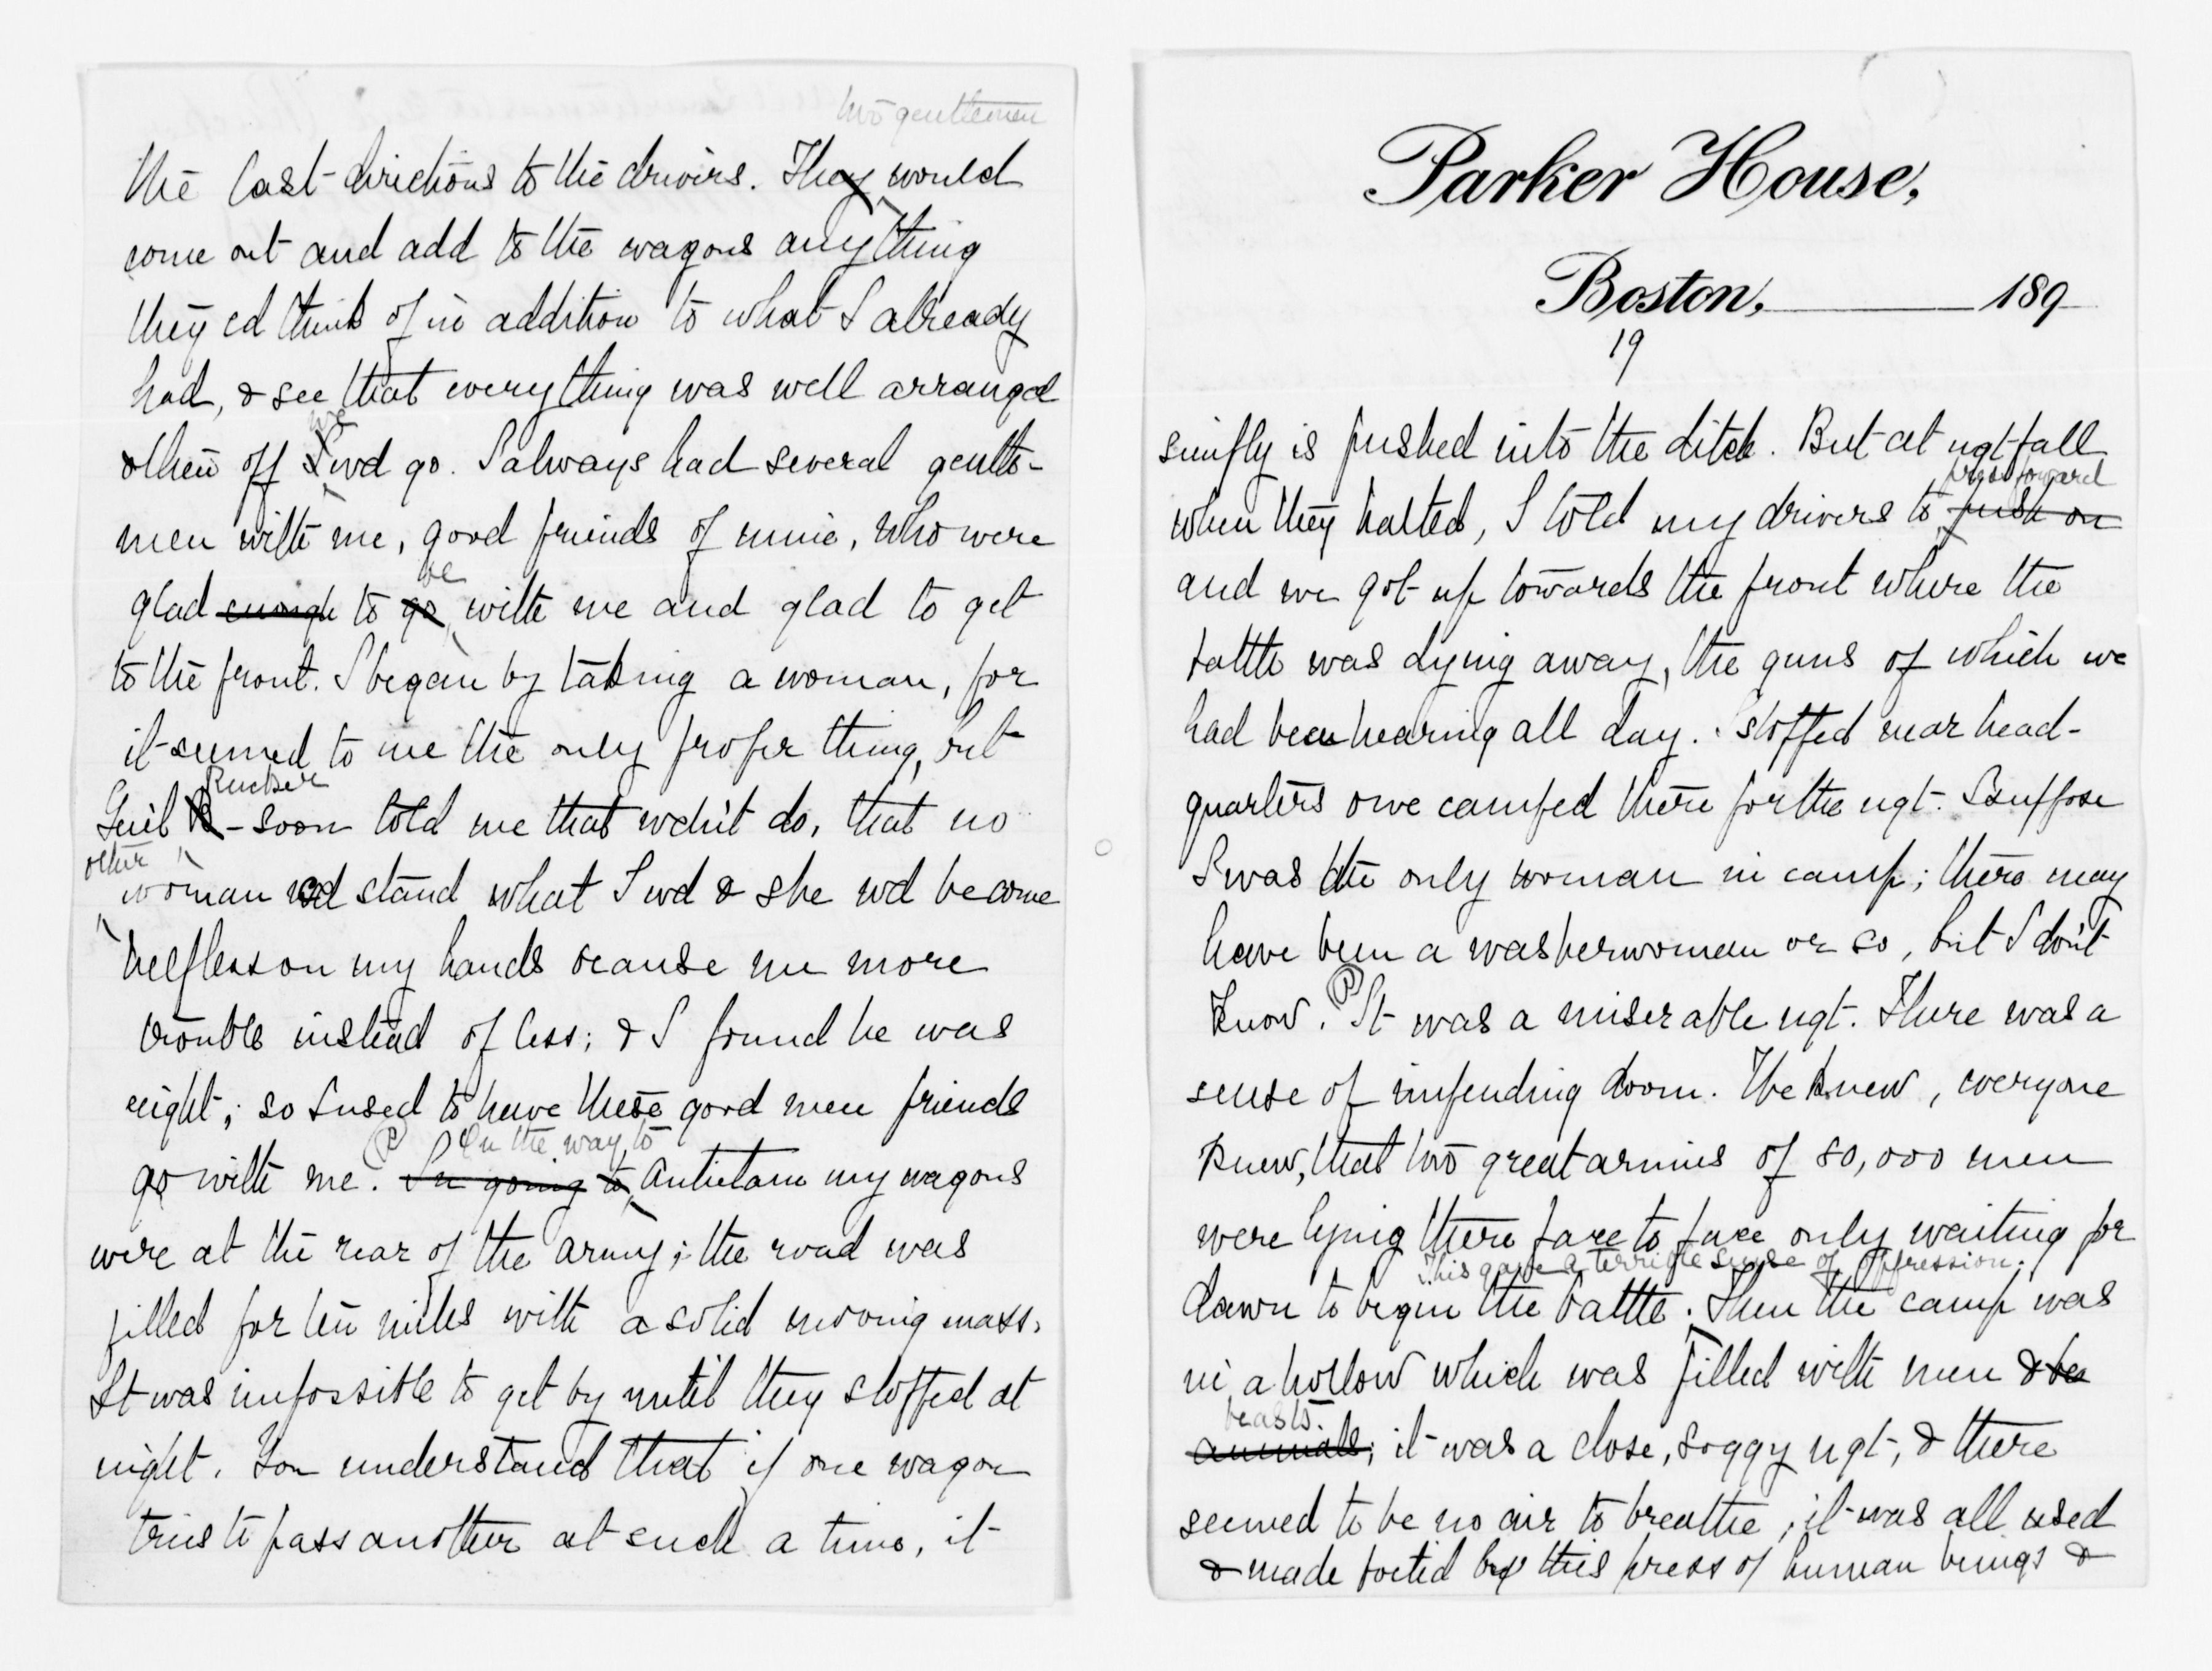 two gentlemen
the last directions to the drivers. They would
come out and add to the wagons anything
they cd think of in addition to what I already
had, & see that everything was well arranged
we
& then off I wd go. I always had several gentle-
men with me, good friends of mine, who were
be
glad enough to go with me and glad to get
to the front. I began by taking a woman, for
it seemed to me the only proper thing, but
Rucker
Gen'l R - soon told me that wdn't do, that no
other
woman wd stand what I wd & she wd become
helpless on my hands & cause me more
trouble instead of less; & I found he was
right; so I used to have these good men friends
On the way to
go with me. In going to Antietam my wagons
were at the rear of the army; the road was
filled for ten miles with a solid moving mass.
It was impossible to get by until they stopped at
night. You understand that if one wagon
tries to pass another at such a time, it
Parker House,
Boston, 189
19
simply is pushed into the ditch. But at ngt fall
press forward
when they halted, I told my drivers to push on
and we got up towards the front where the
battle was dying away, the guns of which we
had been hearing all day. I stopped near head-
quarters & we camped there for the ngt. I suppose
I was the only woman in camp; there may
have been a washerwoman or so, but I don't
know. It was a miserable ngt. There was a
sense of impending doom. We knew, everyone
knew, that two great armies of 80,000 men
were lying there face to face only waiting for
This gave a terrible sense of oppression.
dawn to begin the battle. Then the camp was
in a hollow which was filled with men & be
beasts.
animals; it was a close, soggy ngt, & there
seemed to be no air to breathe; it was all used
& made foetid by this press of human beings &